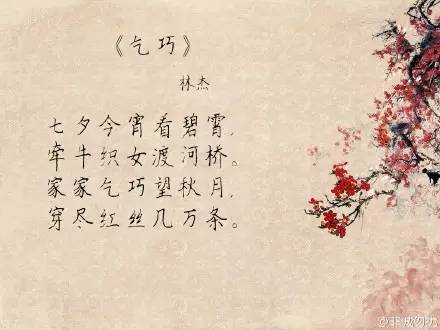 《乞巧》
林杰
七夕今宵看碧霄,
牵牛织女渡河桥。
家家乞巧望秋月,
穿尽红丝几万条。